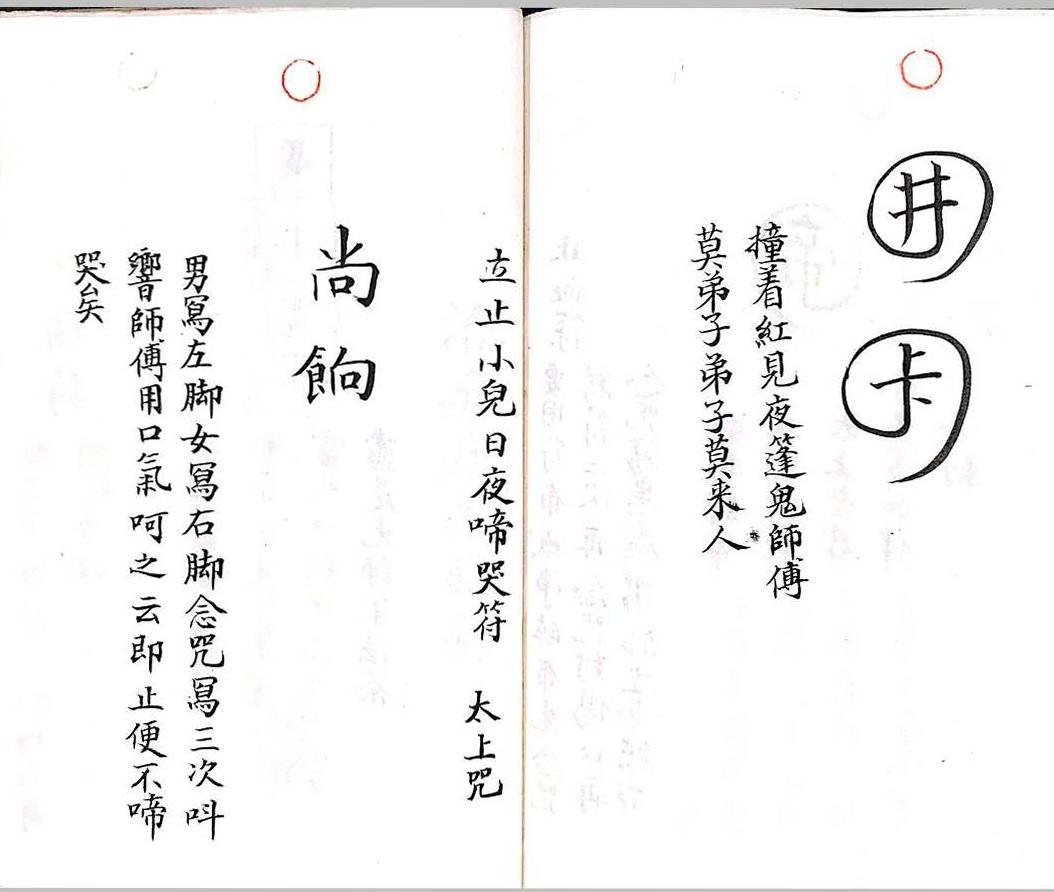 井
卡
撞着紅見夜篷鬼師傅
莫弟子弟子莫来人
立止小兒日夜啼哭符 太上咒
尚
餉
男寫左脚女寫右脚念咒寫三次呌
響師傅用口氣呵之云即止便不啼
哭矣